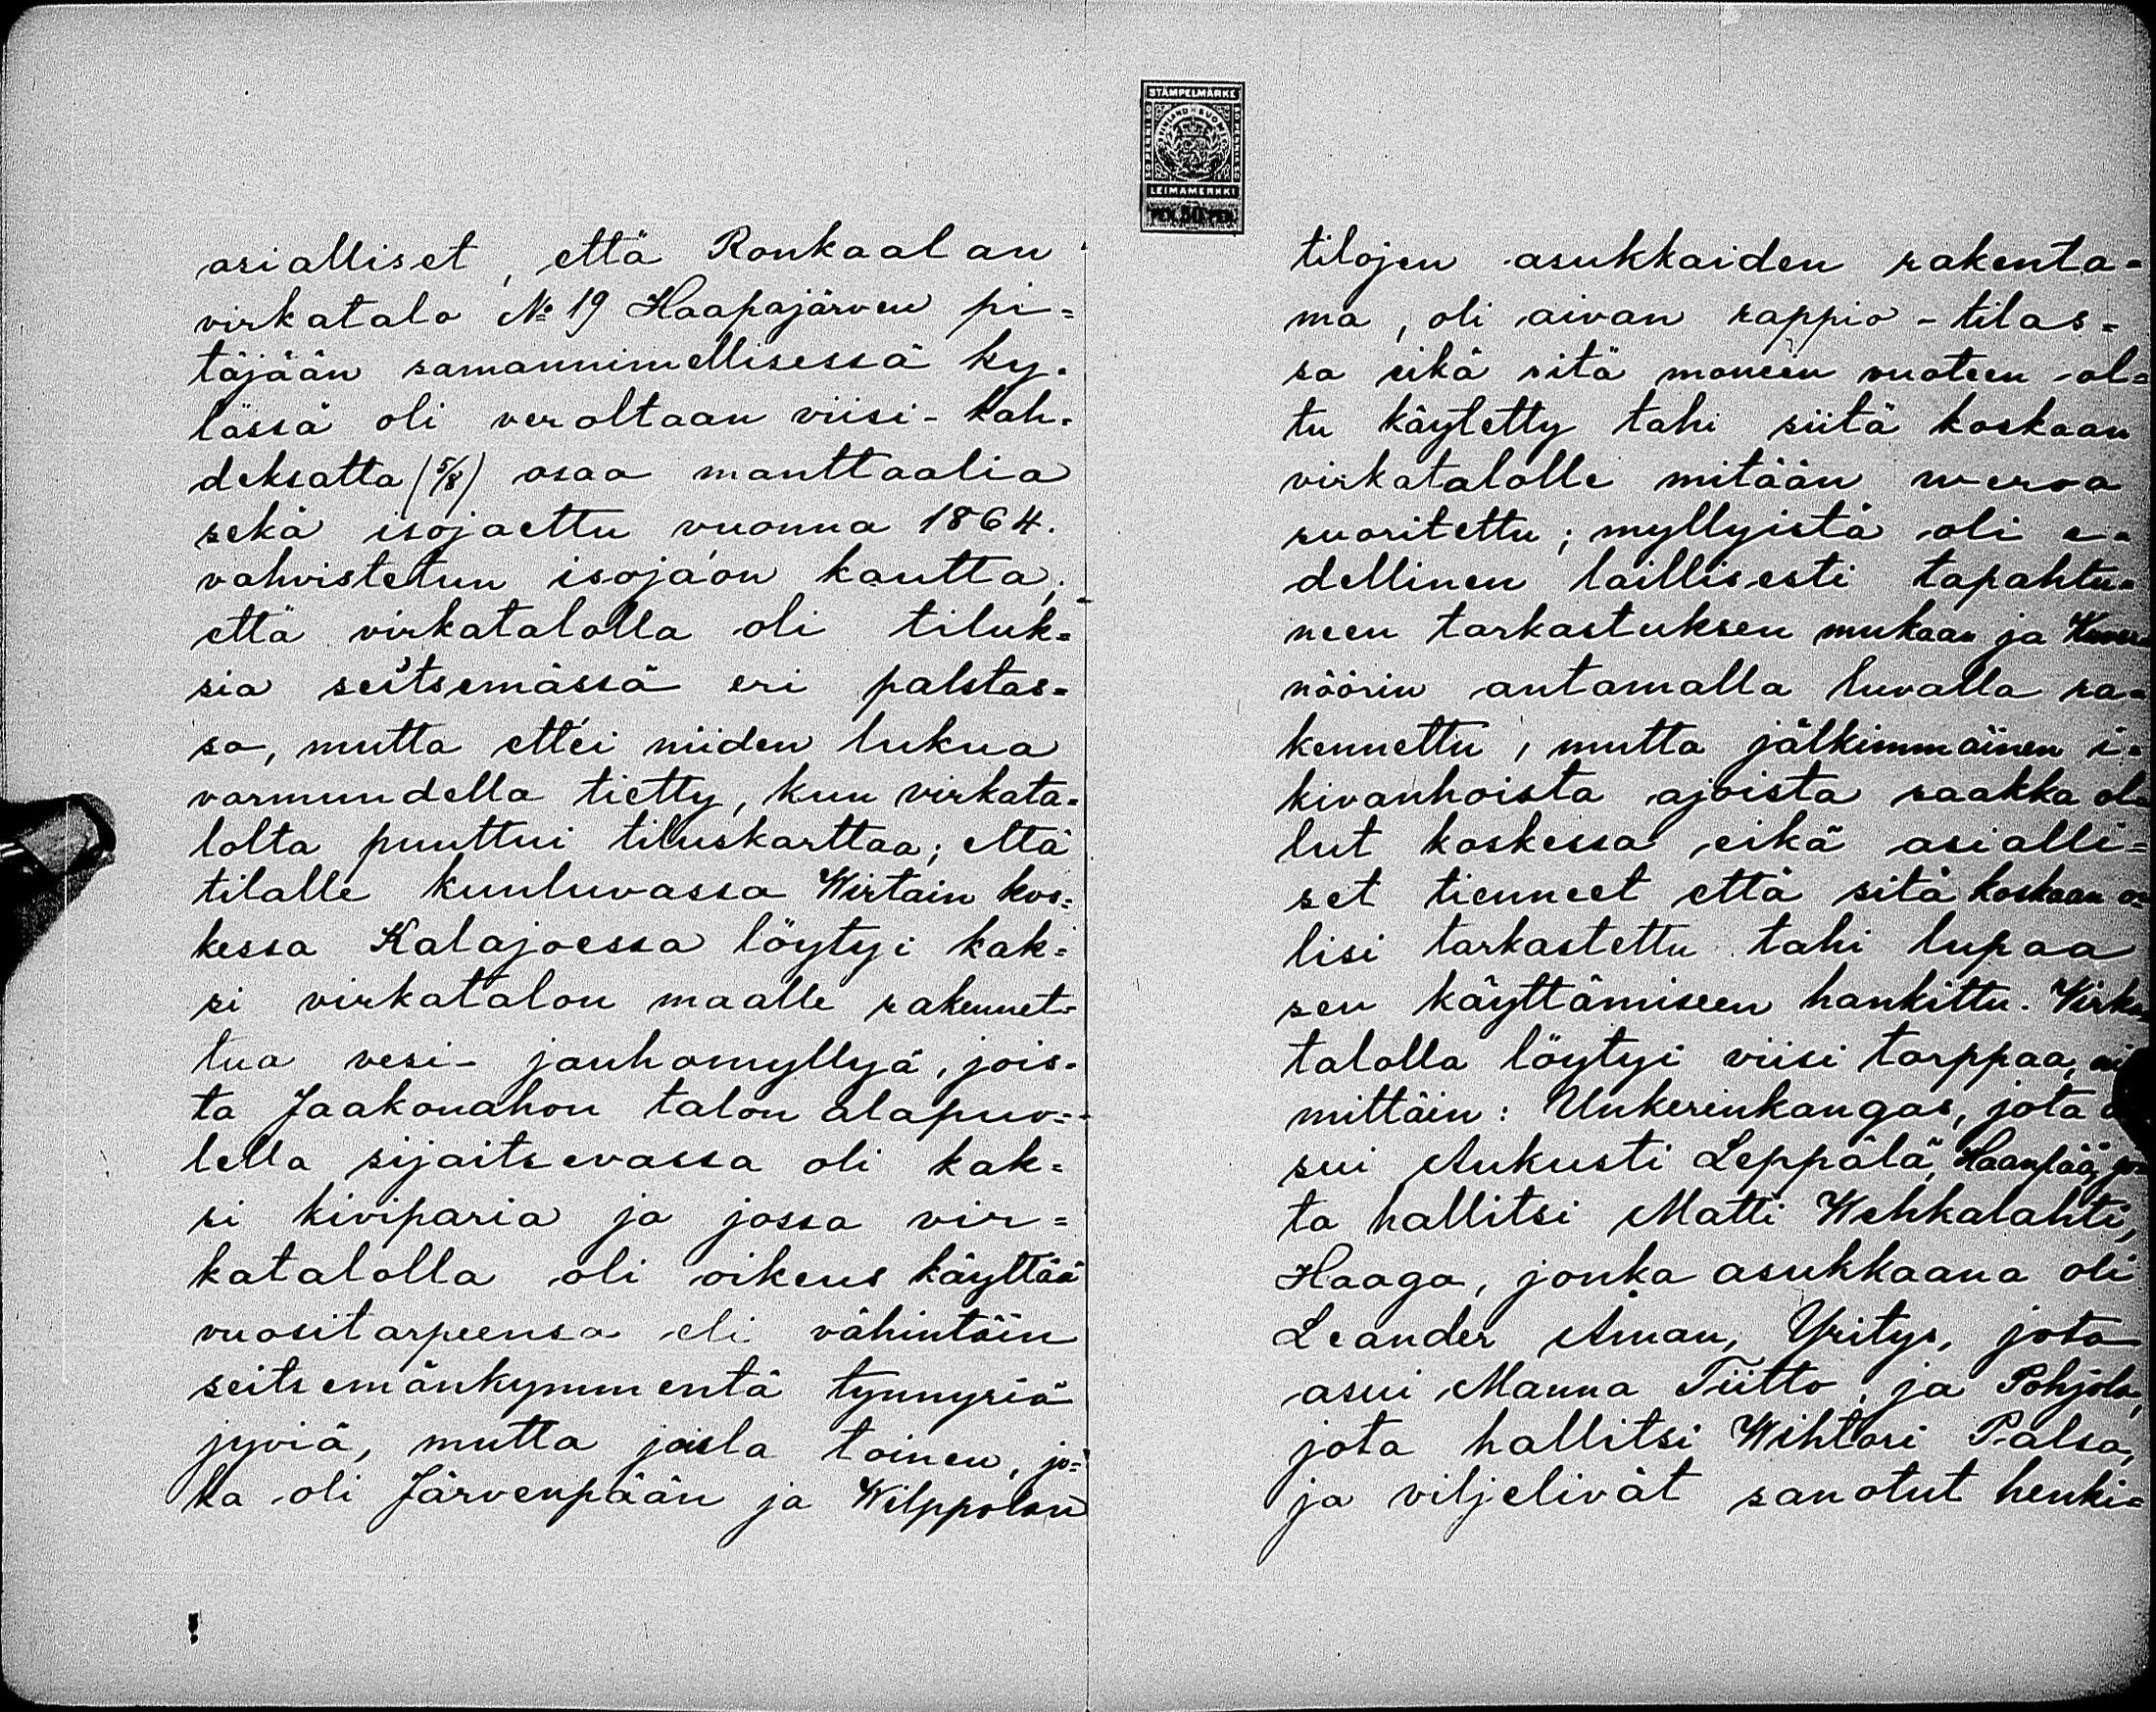 asialliset, että Ronkaalan
virkatalo №19 Haapajärven pi=
täjään samannimellisessä ky=
lässä oli veroltaan viisi-kah=
deksatta (5/8) osaa manttaalia
sekä isojaettu vuonna 1864.
vahvistetun isojaon kautta;
että virkatalolla oli tiluk=
sia seitsemässä eri palstas=
sa, mutta ettei niiden lukua
varmuudella tietty, kun virkata=
lolta puuttui tiluskarttaa; että
tilalle kuuluvassa Wirtain kos=
kessa Kalajoessa löytyi kak=
si virkatalon maalle rakennet=
tua vesi-jauhomyllyä, jois=
ta Jaakonahon talon alapuo=
lella sijaitsevassa oli kak=
si kiviparia ja jossa vir=
katalolla oli oikeus käyttää
vuositarpeensa eli vähintäin
seitsemänkymmentä tynnyriä
jyviä, mutta joista toinen, jo=
ka oli Järvenpään ja Wilppolan
STÄMPELMÄRKE
FINLAND SUOMI
LEIMAMERKKI
PEN. 50 PEN.
tilojen asukkaiden rakenta=
ma, oli aivan rappio-tilas=
sa eikä sitä moneen vuoteen ol=
tu käytetty tahi siitä koskaan
virkatalolle mitään veroa
suoritettu; myllyistä oli e=
dellinen laillisesti tapahtu=
neen tarkastuksen mukaan ja Kuver
nöörin antamalla luvalla ra=
kennettu, mutta jälkimmäinen i=
kivanhoista ajoista saakka ol=
lut koskessa eikä asialli=
set tienneet että sitä koskaan o=
lisi tarkastettu tahi lupaa
sen käyttämiseen hankittu. Virka=
talolla löytyi viisi torppaa, ni
mittäin: Unkerinkangas, jota a
sui Aukusti Leppälä, Haanpää, jo=
ta hallitsi Matti Wehkalahti,
Haaga, jonka asukkaana oli
Leander Åman, Yritys, jota
asui Manna Tiitto, ja Pohjola,
jota hallitsi Wihtori Palsa,
ja viljelivät sanotut henki=